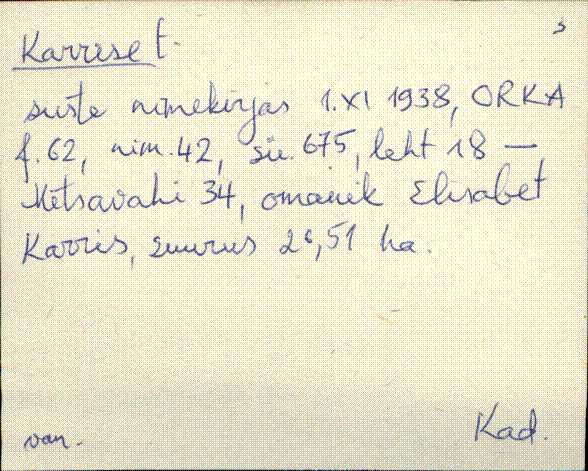 s
Karrise t.
suste nimekirjas 1.XI 1938, ORKA
f. 62, nim. 42, sü. 675, leht 18 —
Metsavahi 34, omanik Elisabet
Karris, suurus 26,51 ha.
van.
Kad.